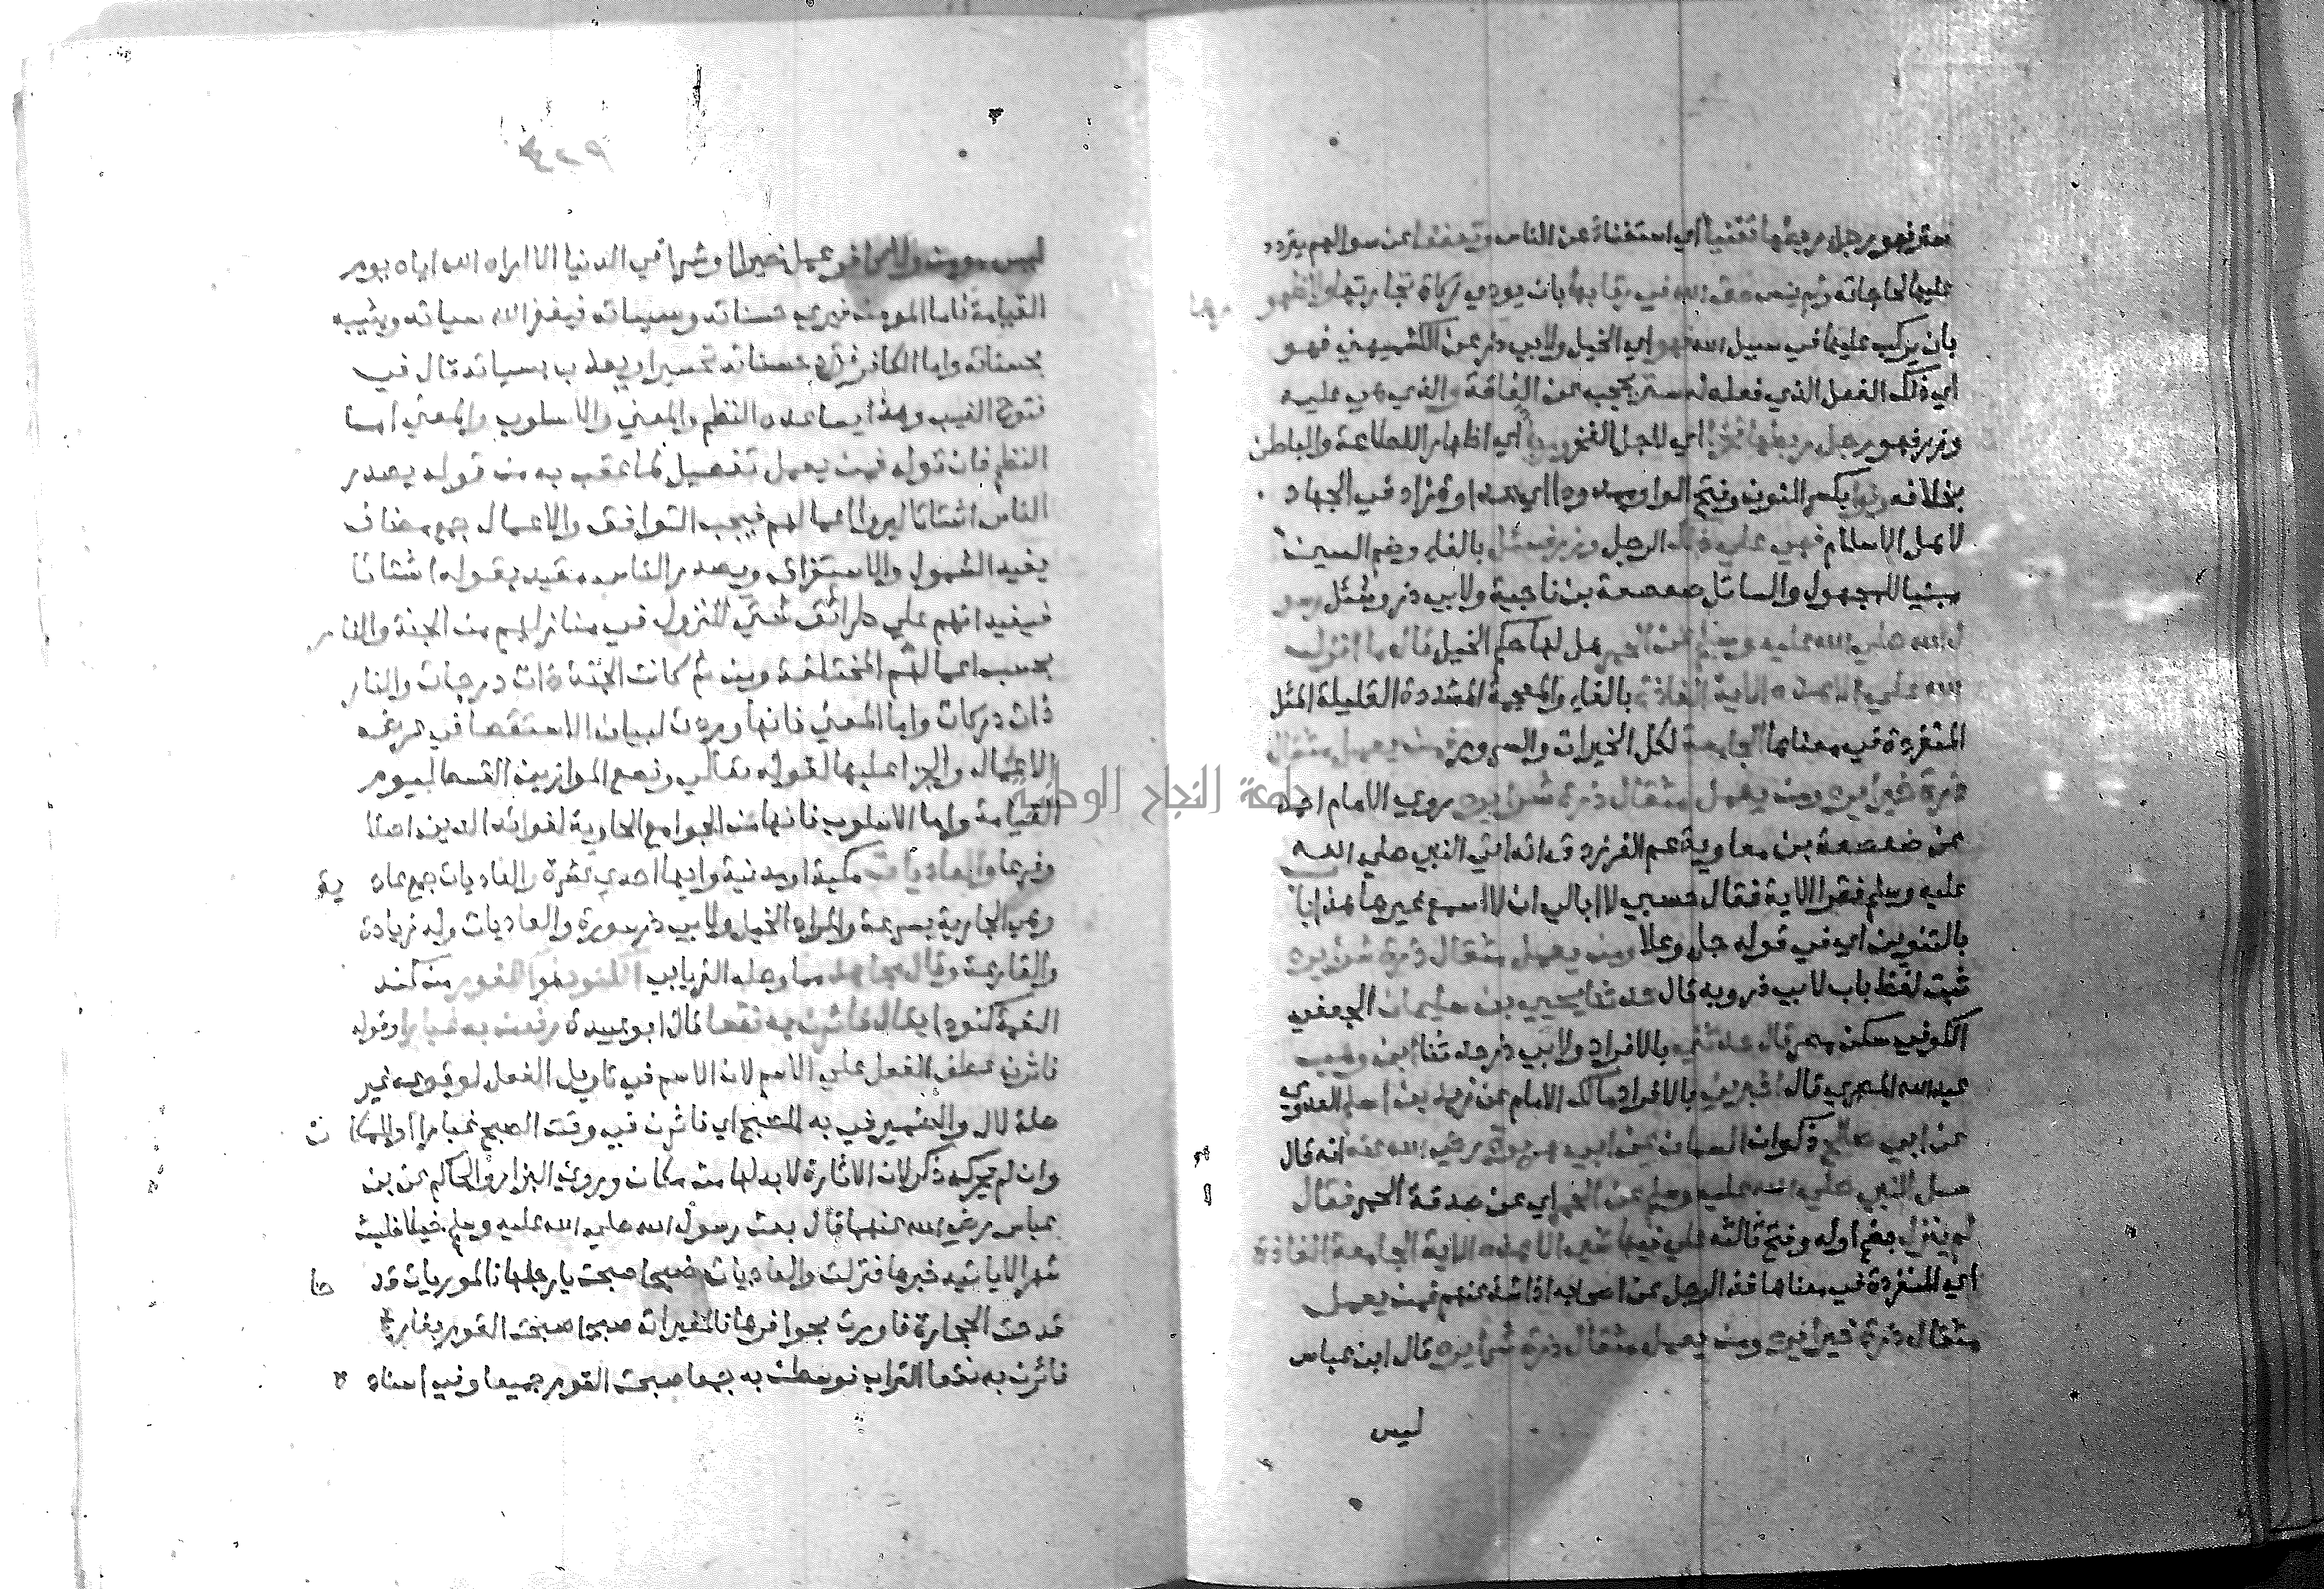 ستر فهو رجل ربطها تغنيا أي استغناء عن الناس وتعففا عن سوالهم يتردد
عليها لحاجاته ولم ينس حق الله في رقابها بان يودي زكاة تجارتها ولا ظهو
رها
بان يركب عليها في سبيل الله فهو اي الخيل ولابي ذر عن الكشميهني فهو
اي ذلك الفعل الذي فعله له ستر يحجبه عن الفاقة والذي هي عليه
وزر فهو رجل ربطها فخرا اي لاجل الفخر ورياء أي اظهارا للطاعة والباطن
بخلافه ونواء بكسر النون وفتح الواو ممدودا اي عداوة زاد في الجهاد
لاهل الاسلام فهي علي ذلك الرجل وزر فسئل بالفاء وضم السين
مبنيا للمجهول والسائل صعصعة بن ناجية ولابي ذر وسئل رسو
ل الله صلي الله عليه وسلم عن الحمر هل لها حكم الخيل قال ما انزل
الله علي الا هذه الاية الفاذة بالفاء والمعجمة المشددة القليلة المثل
المنفردة في معناها الجامعة لكل الخيرات والسرور فمن يعمل مثقال
ذرة خيرا يره ومن يعمل مثقال ذرة شرا يره روي الامام احمد
عن صعصعة بن معاوية عم الفرزدق انه اتي النبي صلي الله
عليه وسلم فقرا الاية فقال حسبي لا ابالي ان لا اسمع غيرها هذا باب
بالتنوين اي في قوله جل وعلا ومن يعمل مثقال ذرة شرا يره
ثبت لفظ باب لابي ذر وبه قال حدثنا يحيي بن سليمان الجعفي
الكوفي سكن مصر قال حدثني بالافراد ولابي ذر حدثنا ابن وهب
عبد الله المصري قال اخبرني بالافراد مالك الامام عن زيد بن اسلم العدوي
عن ابي صالح ذكوان السمان عن ابي هريرة رضي الله عنه انه قال
سئل النبي صلي الله عليه وسلم عن الحمر اي عن صدقة الحمر فقال
لم ينزل بضم اوله وفتح ثالثه علي فيها شي الا هذه الاية الجامعة الفاذة
اي المنفردة في معناها فذ الرجل عن اصحابه اذا شذ عنهم فمن يعمل
مثقال ذرة خيرا يره ومن يعمل مثقال ذرة شرا يره قال ابن عباس
ليس
ليس مومن ولا كافر عمل خيرا او شرا في الدنيا الا اراه الله اياه يوم
القيامة فاما المومن فيري حسناته وسيياته فيغفر الله سياته ويثيبه
بحسناته واما الكافر فترد حسناته تحسيرا ويعذب بسياته قال في
فتوح الغيب وهذا يساعده النظم والمعني والاسلوب والمعني اما
النظم فان قوله فمن يعمل تفصيل لما عقب به من قوله يصدر
الناس اشتاتا ليروا اعمالهم فيجب التوافق والاعمال جمع مضاف
يفيد الشمول والاستغراق ويصدر الناس مقيد بقوله اشتاتا
فيفيد انهم علي طرائق شتي للنزول في منازلهم من الجنة والنار
بحسب اعمالهم المختلفة ومن ثم كانت الجنة ذات درجات والنار
ذات دركات واما المعني فانها وردت لبيان الاستقصا في عرض
الاعمال والجزا عليها لقوله تعالي ونضع الموازين القسط ليوم
القيامة واما الاسلوب فانها من الجوامع الحاوية لفوائد الدين اصلا
وفرعا والعاديات مكية او مدنية وايها احدي عشرة والعاديات جمع عاد
ية
وهي الجارية بسرعة والمراد الخيل ولابي ذر سورة والعاديات وله زيادة
والقارعة وقال مجاهد مما وصله الفريابي الكنود هو الكفور من كند
النعمة كنودا يقال فاثرن به نقعا قال ابو عبيدة رفعن به غبارا وقوله
فاثرن عطف الفعل علي الاسم لان الاسم في تاويل الفعل لوقوعه غير
صلة لال والضمير في به للصبح اي فاثرن في وقت الصبح غبارا او للمكا ن
وان لم يجر له ذكر لان الاثارة لابد لها من مكان وروي البزار والحاكم عن بن
عباس رضي الله عنهما قال بعث رسول الله صلي الله عليه وسلم خيلا فلبث
شهرا لا ياتيه خبرها فنزلت والعاديات ضبحا ضبحت بارجلها فالموريات قد
حا
قدحت الحجارة فاورت بحوافرها فالمغيرات صبحا صبحت القوم بغارة
فاثرن به نقعا التراب فوسطن به جمعا صبحت القوم جميعا وفي اسناده
جامعة النجاح الوطنية